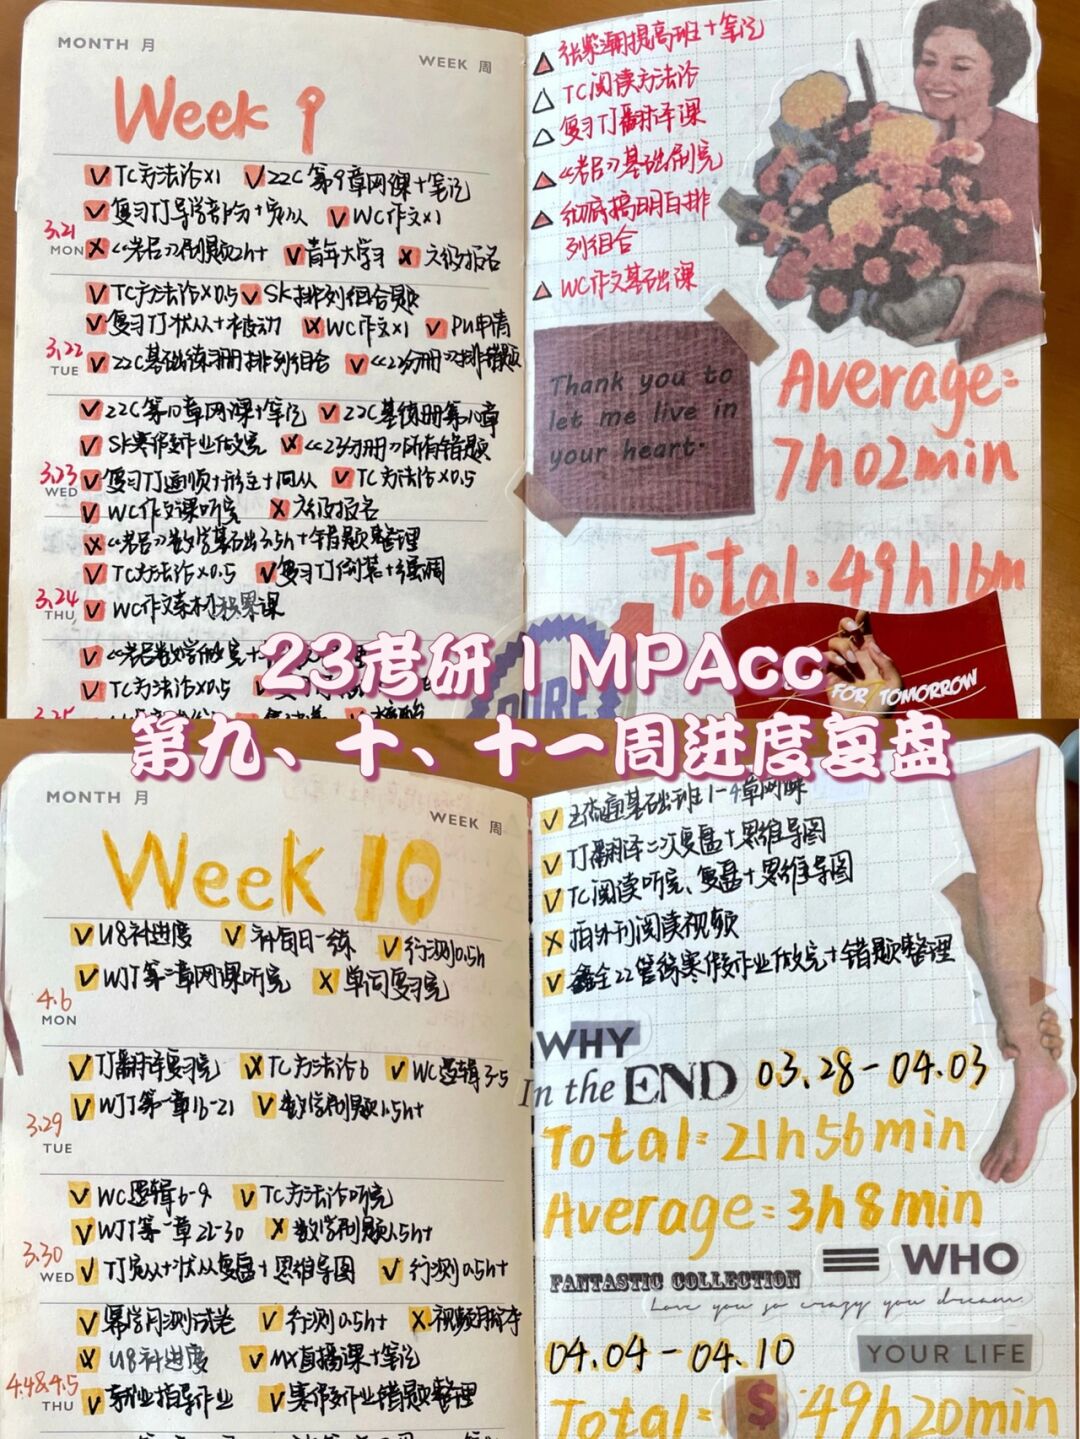 MONTH 月
WEEK 周
Week 9
TC方法论×1 22C第9章网课+笔记
复习TJ导学部分+定从 WC作文×1
3.21
MON
《老吕》刷题2h+ 青年大学习 六级报名
TC方法论×0.5 SK排列组合题
复习TJ状从+被动 WC作文×1 PU申请
3.22
TUE
22C基础练习册排列组合 《23分册》排错题
22C第10章网课+笔记 22C基础册第10章
SK寒假作业做完 《23分册》所有错题
3.23
WED
复习TJ
TC方法论×0.5
WC作文课听完 六级报名
《老吕》数学基础3.5h+错题整理
TC方法论×0.5 复习TJ倒装+强调
3.24
THU
WC作文素材积累课
《老吕》数学做完+
TC方法论×0.5
3.25
张紫潮提高班+笔记
TC阅读方法论
复习TJ翻译课
《老吕》基础刷完
彻底搞明白排
列组合
WC作文基础课
Thank you to
let me live in
your heart.
Average=
7h02min
Total:49h16m
FOR TOMORROW
23考研 | MPAcc
第九、十、十一周进度复盘
MONTH 月
WEEK 周
Week 10
U8补进度 补每日一练 行测0.5h
WJT第二章网课听完 单词复习完
4.6
MON
TJ翻译复习完 TC方法论6 WC逻辑3-5
WJT第一章16-21 数学刷题1.5h+
3.29
TUE
WC逻辑6-9 TC方法论听完
WJT第一章22-30 数学刷题1.5h+
3.30
WED
TJ定从+状从复盘+思维导图 行测0.5h+
幂学月测试卷 行测0.5h+
U8补进度 MX直播课+笔记
4.4&4.5
THU
就业指导作业 寒假作业错题整理
基础班1-4章网课
TJ翻译二次复盘+思维导图
TC阅读听完、复盘+思维导图
拍外刊阅读视频
鑫全22管综寒假作业做完+错题整理
WHY
In the END 03.28-04.03
Total=21h56min
Average=3h8min
WHO
FANTASTIC COLLECTION
Love you so crazy you dream
04.04-04.10
YOUR LIFE
Total= $ 49h20min